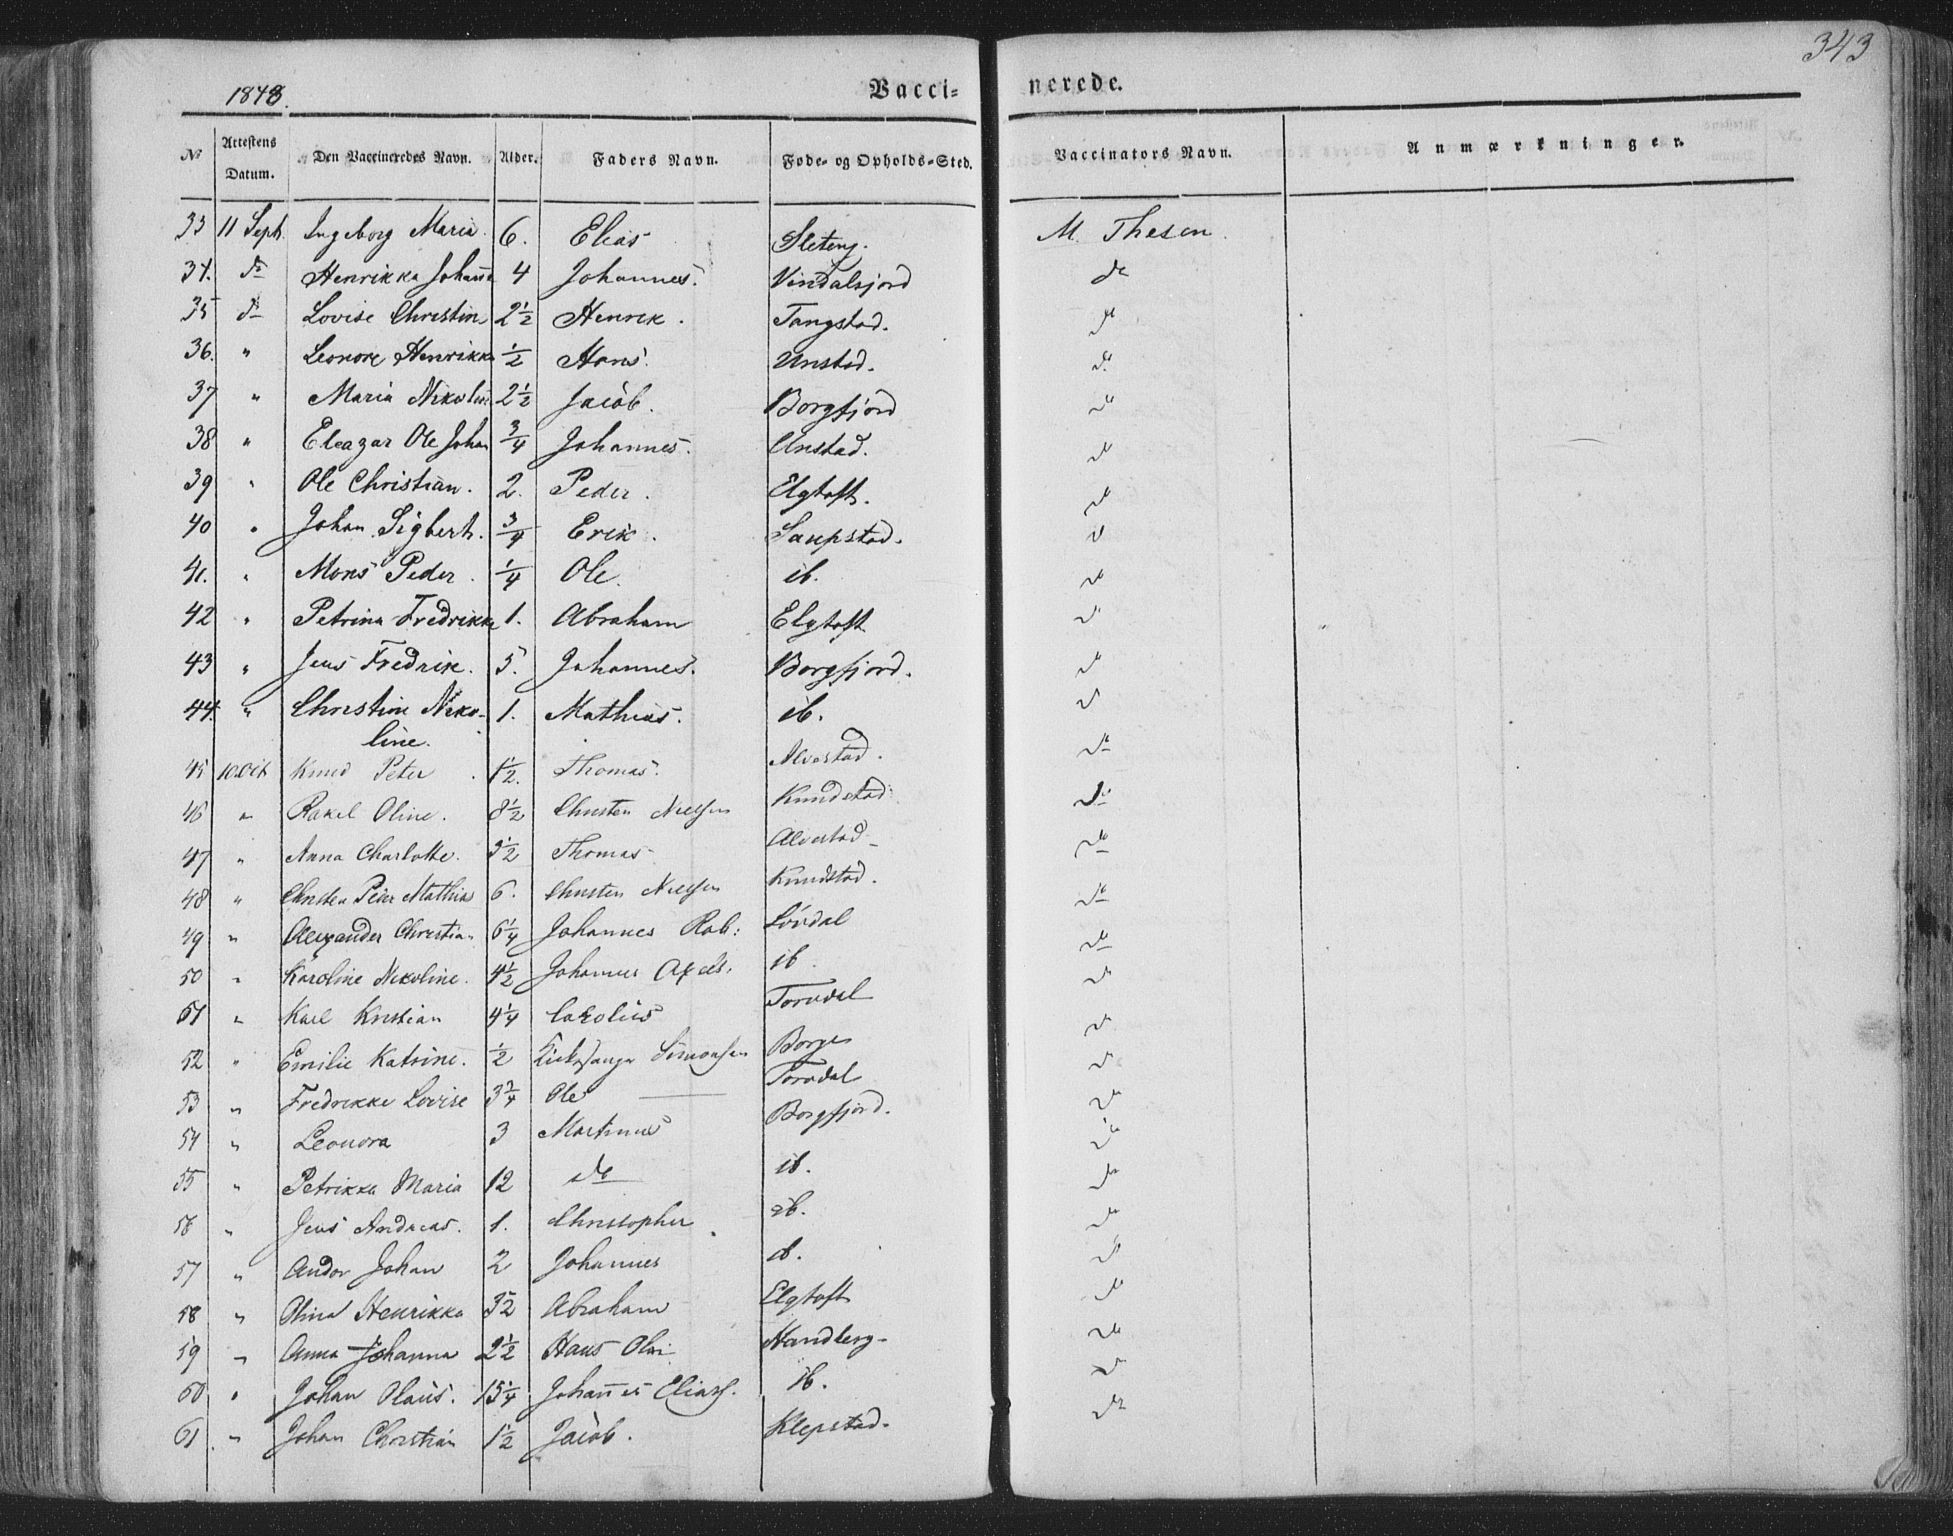 343
1848.
Vacci=
nerede.
No
Attestens Datum.
Den Vaccineredes Navn.
Alder.
Faders Navn.
Føde- og Opholds-Sted.
Vaccinators Navn.
Anmærkninger.
33 11 Sept. Ingeborg Maria. 6. Elias Sletteng. M. Thesen
34. do Henrikka Johanna 4 Johannes. Vindalsjord do
35 do Lovise Christin 2 1/2 Henrik. Tangstad. do
36. " Leonore Henrikka 1/2 Hans. Unstad. do
37 " Maria Nikolin 2 1/2 Jacob. Borgfjord do
38 " Eleazar Ole Johan 3/4 Johannes. Unstad. do
39 " Ole Christian. 2. Peder. Elgtoft. do
40 " Johan Sigbert. 3/4 Erik. Saupstad. do
41. " Mons Peder. 1/4 Ole. ib. do
42 " Petrina Fredrikka 1. Abraham Elgtoft do
43 " Jens Fredrik. 5. Johannes. Borgfjord. do
44. " Christine Niko- 1. Mathias. ib. do
line.
45 10 Oct Knud Peter 1 1/2. Thomas. Alvestad. do
46 " Rakel Oline. 8 1/2 Christen Nielsen Kundstad do
47 " Anna Charlotte. 3 1/2 Thomas Alvestad do
48 " Christen Peter Mathias 6. Christen Nielsen Kundstad. do
49 " Alexander Christian 6 1/4 Johannes Rob: Lövdal do
50 " Karoline Nikoline. 4 1/2 Johannes Axels. ib. do
51 " Karl Kristian 4 1/4 Carolius Torvdal do
52 " Emilie Katrine. 1/2 Kirkesanger Simonsen Borge do
53 " Fredrikke Lovise 3 3/4 Ole Torvdal do
54 " Leonora 3 Martinus Borgfjord. do
55 " Petrikka Maria 12 do ib. do
56 " Jens Andreas. 1. Christopher ib. do
57 " Andor Johan 2 Johannes ib. do
58 " Olina Henrikka Abraham Elgtoft do
59 " Anna Johanna 2 1/2 Hans Handberg do
60 " Johan Olaus. 15 1/4 Johannes Eliass. ib. do
61 " Johan Christian 1 1/2 Jacob. Klepstad. do